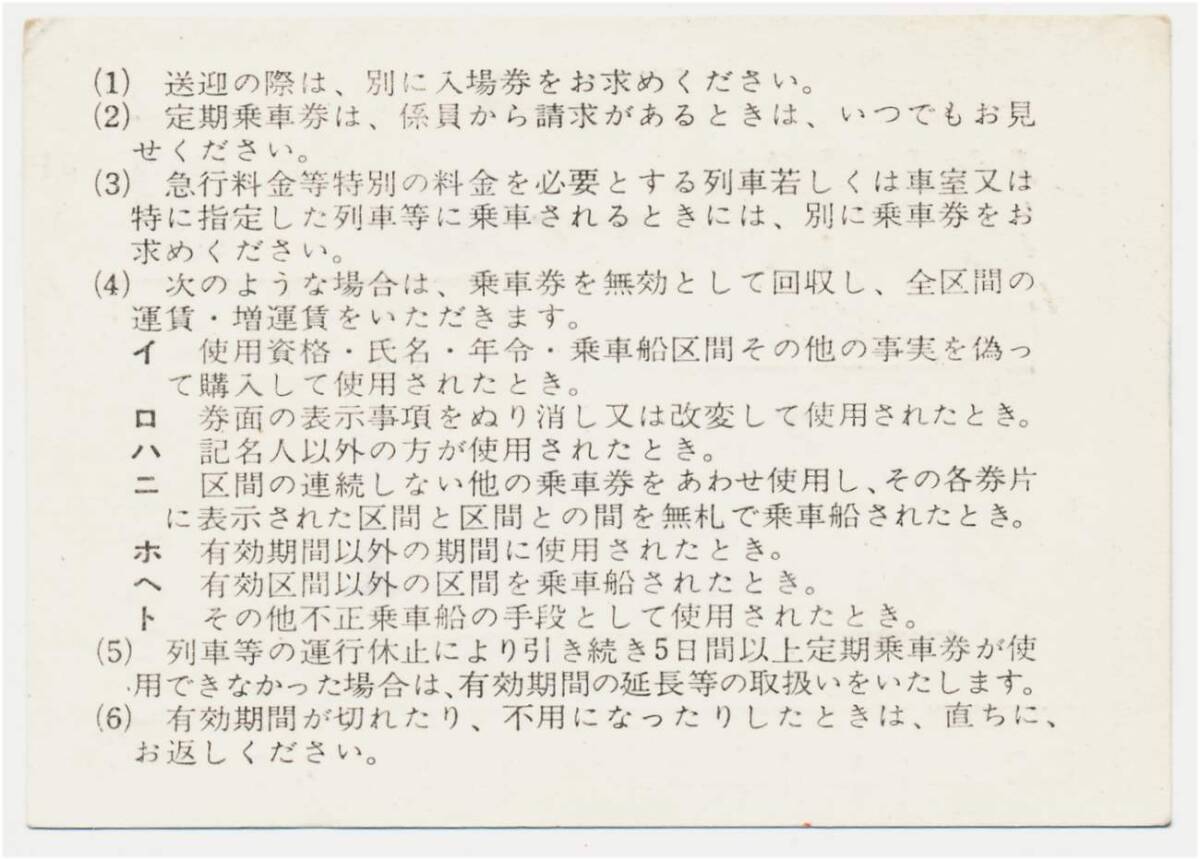 (1) 送迎の際は、別に入場券をお求めください。
(2) 定期乗車券は、係員から請求があるときは、いつでもお見
せください。
(3) 急行料金等特別の料金を必要とする列車若しくは車室又は
特に指定した列車等に乗車されるときには、別に乗車券をお
求めください。
(4) 次のような場合は、乗車券を無効として回収し、全区間の
運賃・増運賃をいただきます。
イ 使用資格・氏名・年令・乗車船区間その他の事実を偽っ
て購入して使用されたとき。
ロ 券面の表示事項をぬり消し又は改変して使用されたとき。
ハ 記名人以外の方が使用されたとき。
ニ 区間の連続しない他の乗車券をあわせ使用し、その各券片
に表示された区間と区間との間を無札で乗車船されたとき。
ホ 有効期間以外の期間に使用されたとき。
ヘ 有効区間以外の区間を乗車船されたとき。
ト その他不正乗車船の手段として使用されたとき。
(5) 列車等の運行休止により引き続き5日間以上定期乗車券が使
用できなかった場合は、有効期間の延長等の取扱いをいたします。
(6) 有効期間が切れたり、不用になったりしたときは、直ちに、
お返しください。